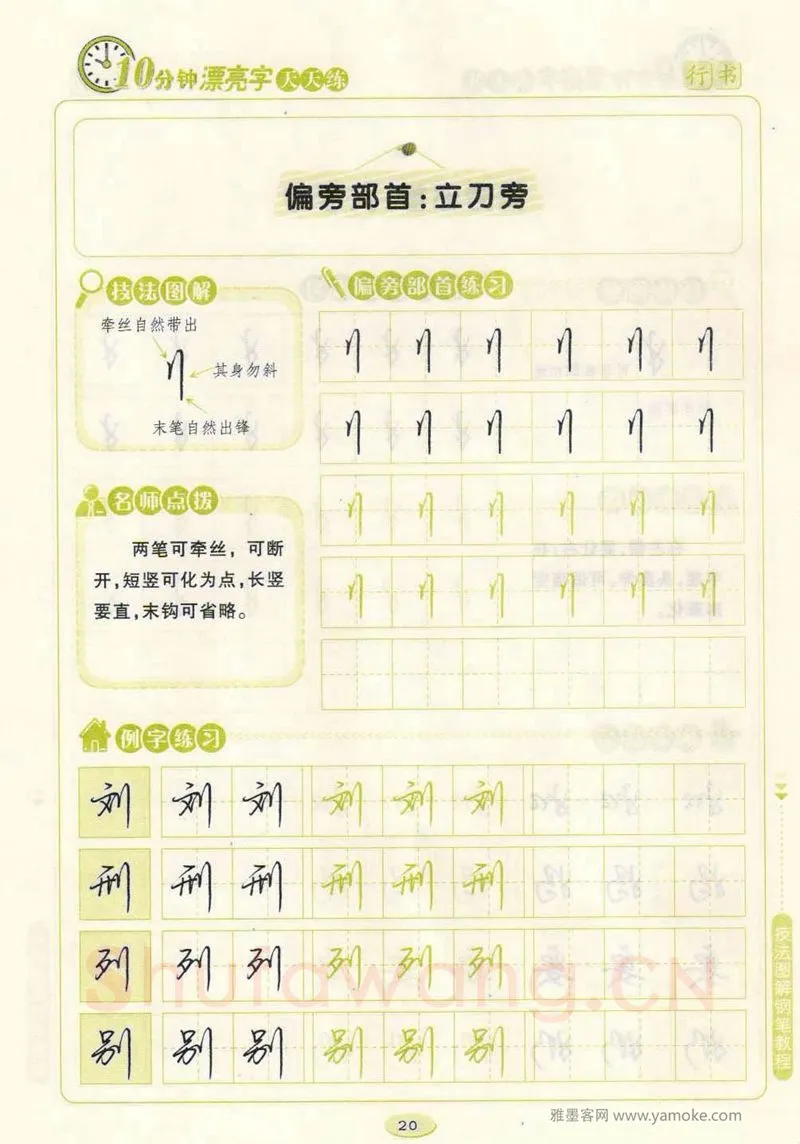 10分钟漂亮字天天练
行书
偏旁部首:立刀旁
技法图解
牵丝自然带出
刂
其身勿斜
末笔自然出锋
偏旁部首练习
刂 刂 刂 刂 刂 刂
刂 刂 刂 刂 刂 刂
刂 刂 刂 刂 刂 刂
刂 刂 刂 刂 刂 刂
名师点拨
两笔可牵丝，可断
开,短竖可化为点,长竖
要直,末钩可省略。
例字练习
刘 刘 刘 刘 刘 刘
刑 刑 刑 刑 刑 刑
列 列 列 列 列 列
别 别 别 别 别 别
Shufawang.CN
技法图解钢笔教程
20
雅墨客网 www.yamoke.com